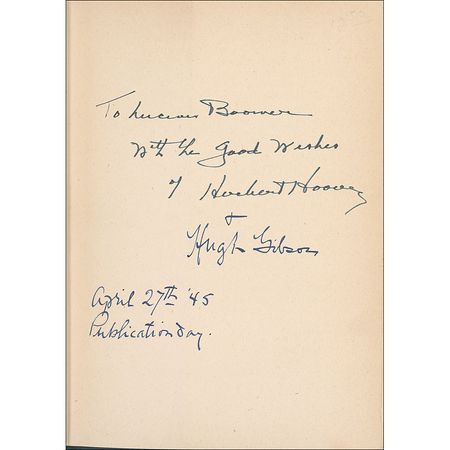 To Lucius Boomer
With the Good Wishes
of Herbert Hoover
+
Hugh Gibson
April 27th '45
Publication day.